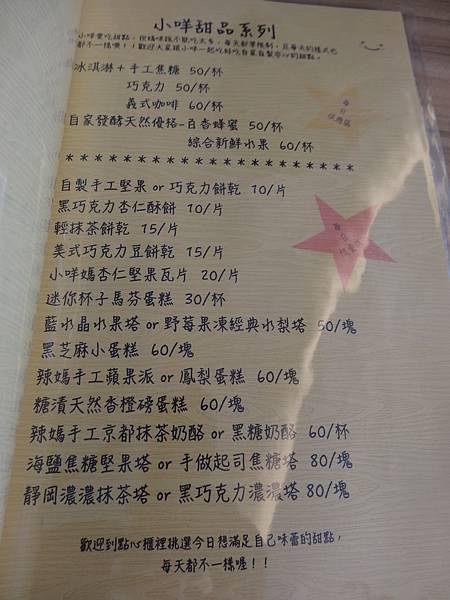 小咩甜品系列
小咩愛吃甜點，但媽咪說不能吃太多，每天都要限制，且每天的樣式也
都不一樣喔！！歡迎大家跟小咩一起吃好吃自家自製安心的甜點。
冰淇淋＋手工焦糖 50/杯
巧克力 50/杯
義式咖啡 60/杯
自家發酵天然優格-百香蜂蜜 50/杯
綜合新鮮水果 60/杯
＊＊＊＊＊＊＊＊＊＊＊＊＊＊＊＊＊＊＊＊＊
自製手工堅果 or 巧克力餅乾 10/片
黑巧克力杏仁酥餅 10/片
輕抹茶餅乾 15/片
美式巧克力豆餅乾 15/片
小咩媽杏仁堅果瓦片 20/片
迷你杯子馬芬蛋糕 30/杯
藍水晶水果塔 or 野莓果凍經典水梨塔 50/塊
黑芝麻小蛋糕 60/塊
辣媽手工蘋果派 or 鳳梨蛋糕 60/塊
糖漬天然香橙磅蛋糕 60/塊
辣媽手工京都抹茶奶酪 or 黑糖奶酪 60/杯
海鹽焦糖堅果塔 or 手做起司焦糖塔 80/塊
靜岡濃濃抹茶塔 or 黑巧克力濃濃塔 80/塊
每日
限量
歡迎到點心櫃裡挑選今日想滿足自己味蕾的甜點，
每天都不一樣喔！！